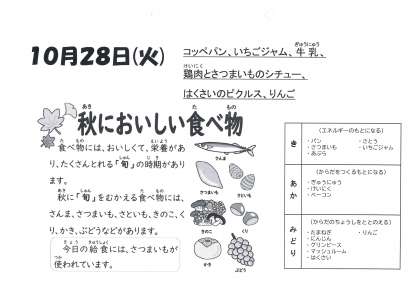 10月28日(火)
コッペパン、いちごジャム、牛乳、
鶏肉とさつまいものシチュー、
はくさいのピクルス、りんご
秋においしい食べ物
食べ物には、おいしくて、栄養があ
り、たくさんとれる「旬」の時期があり
ます。
秋に「旬」をむかえる食べ物には、
さんま、さつまいも、さといも、きのこ、く
り、かき、ぶどうなどがあります。
今日の給食には、さつまいもが
使われています。
さんま
さつまいも
さといも
きのこ
くり
かき
ぶどう
き
(エネルギーのもとになる)
・パン ・さとう
・さつまいも ・いちごジャム
・あぶら
あか
(からだをつくるもとになる)
・ぎゅうにゅう
・けいにく
・ベーコン
みどり
(からだのちょうしをととのえる)
・たまねぎ ・りんご
・にんじん
・グリンピース
・マッシュルーム
・はくさい